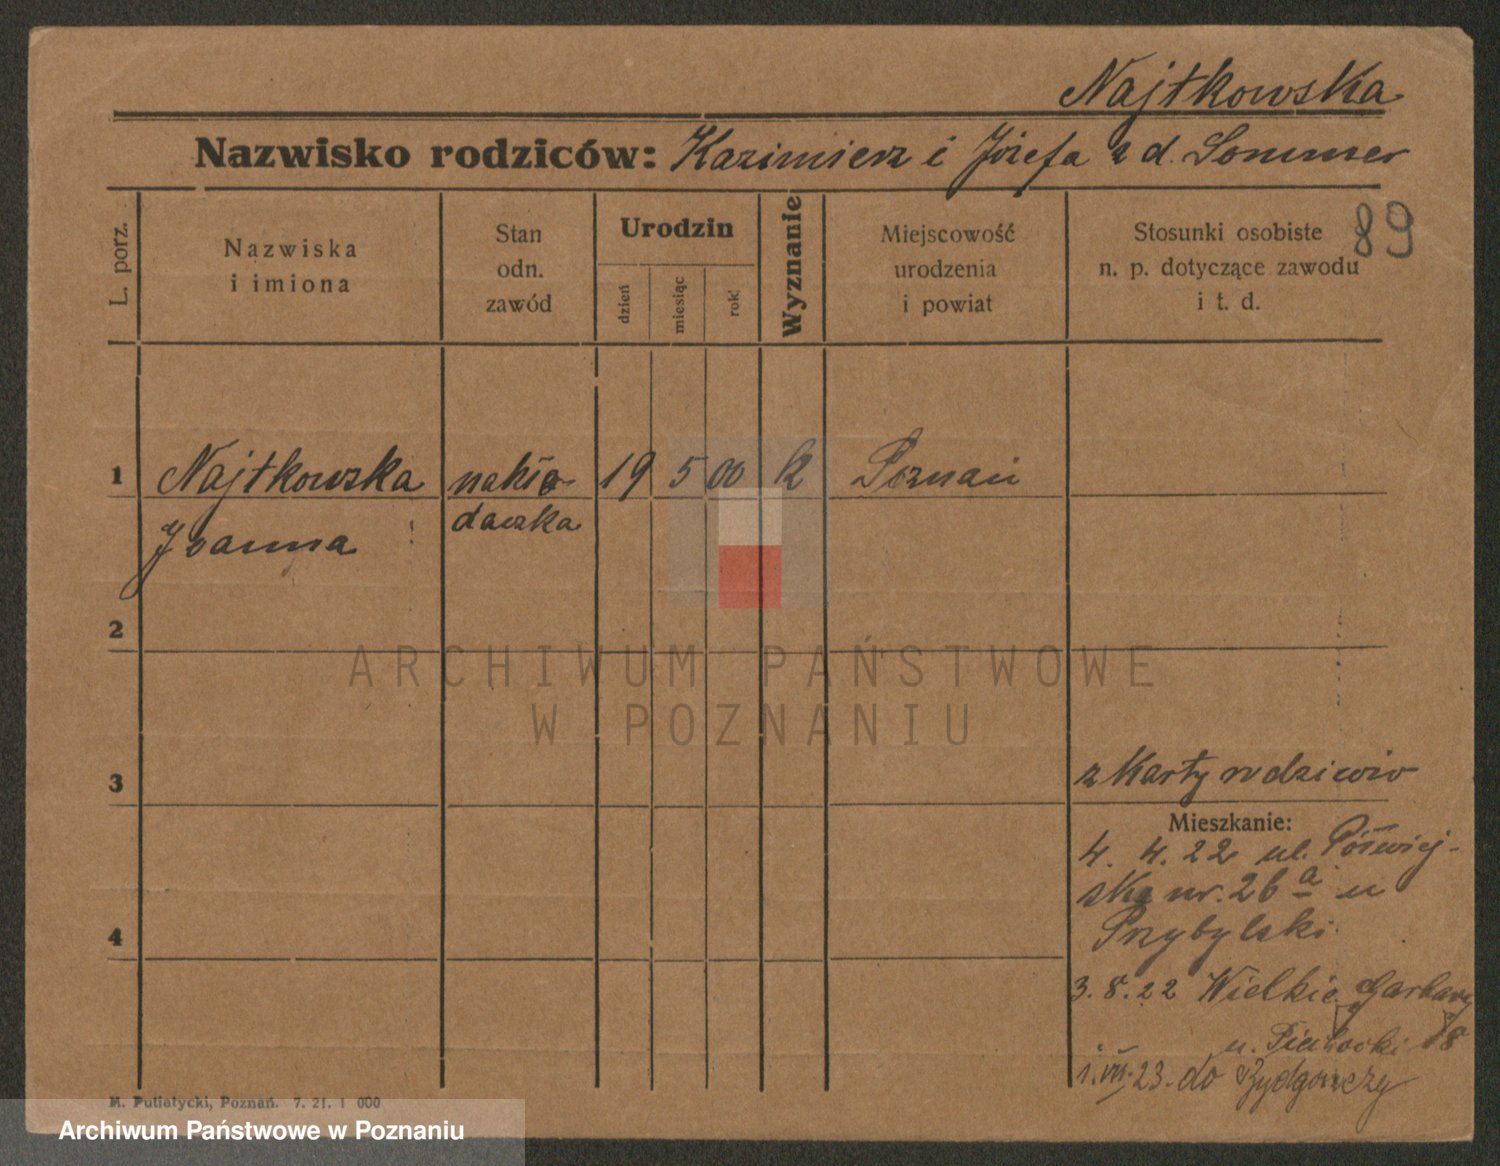 Najtkowska
Nazwisko rodziców: Kazimierz i Józefa z d. Sommer
89
L. porz.
Nazwiska
i imiona
Stan
odn.
zawód
Urodzin
dzień
miesiąc
rok
Wyznanie
Miejscowość
urodzenia
i powiat
Stosunki osobiste
n. p. dotyczące zawodu
i t. d.
1 Najtkowska nakła- 19 5 00 k Poznań
Joanna daczka
2
ARCHIWUM PAŃSTWOWE
W POZNANIU
3
z karty rodziców
Mieszkanie:
4. 4. 22 ul. Półwiej-
ska nr. 26 a u
4
Przybylski
3. 8. 22 Wielkie Garbary
18
u.
1. VII. 23. do Bydgoszczy
M. Putiatycki, Poznań. 7. 21. 1 000
Archiwum Państwowe w Poznaniu